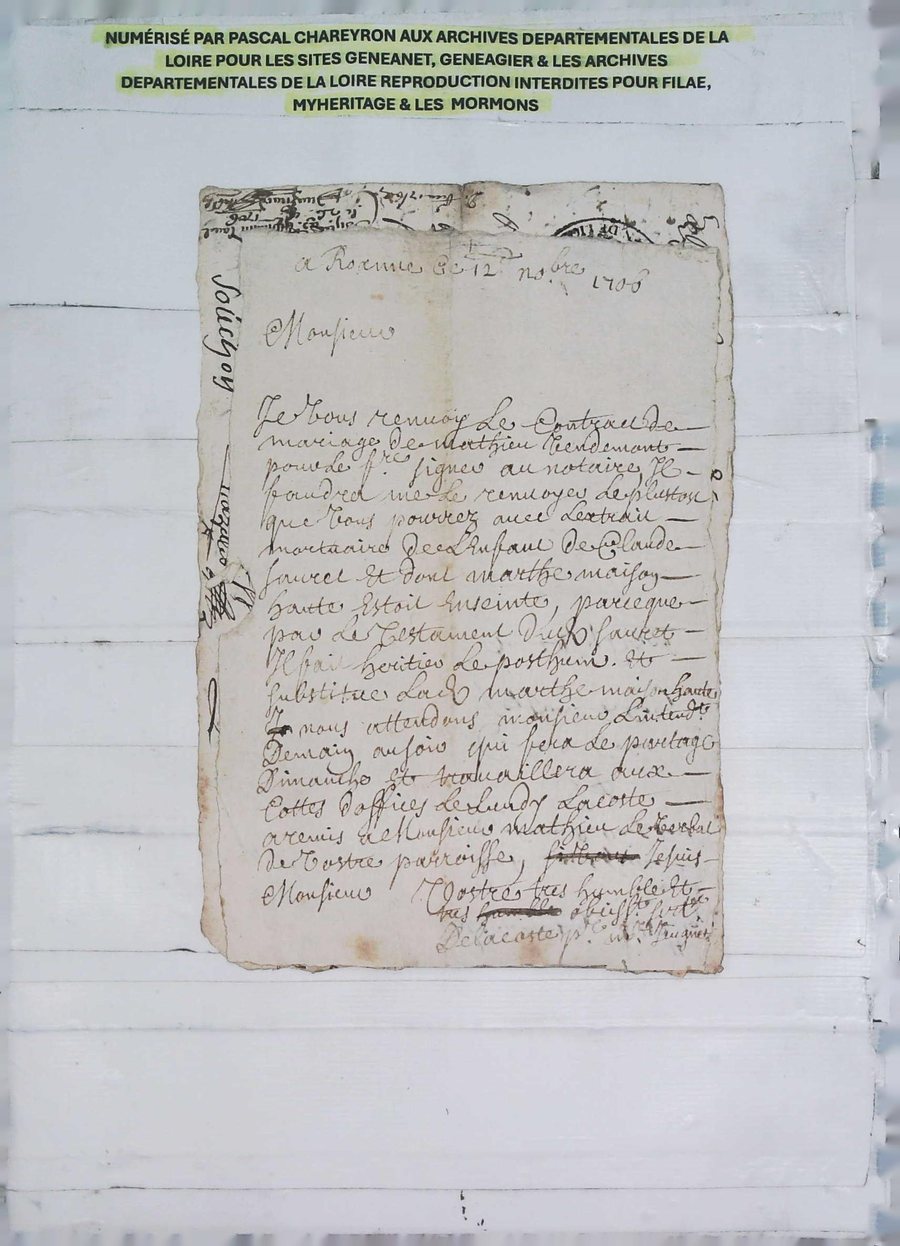 NUMÉRISÉ PAR PASCAL CHAREYRON AUX ARCHIVES DEPARTEMENTALES DE LA
LOIRE POUR LES SITES GENEANET, GENEAGIER & LES ARCHIVES
DEPARTEMENTALES DE LA LOIRE REPRODUCTION INTERDITES POUR FILAE,
MYHERITAGE & LES MORMONS
a Roanne ce 12 nobre 1706
Monsieur
Je vous renvoy le Contract de
mariage de mathieu
pour le fre signer au notaire, Il
faudra me le renvoyer le plustost
que vous pourrez avec lextrait
mortuaire de l'Enfant de Claude
sauret Et dont marthe maison
haute Estoit Enseinte, parceque
par le Testament dud sauret
Il fait heritier le posthum. Et
substitue lad marthe maison haute
nous attendons monsieur L'intendt
Demain au soir qui fera le partage
Dimanche et travaillera aux
Cottes d'offices le Lundy Lacoste
a remis a Monsieur mathieu le verbal
de vostre parroisse, Je suis
Monsieur Vostre tres humble Et
tres obeisst
Delacoste pr
Souchon